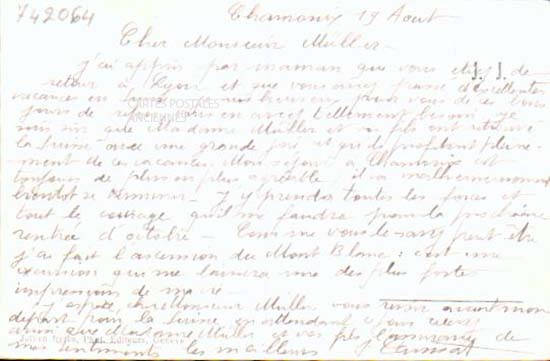 742064
Chamonix 19 Août
Cher Monsieur Müller -
j'ai appris par maman que vous de
retour à Lyon et que vous avez passé d'excellentes
vacances en
CARTES POSTALES
ANCIENNES
jours de repos vous en avez tellement besoin je
suis sûr que Madame Müller et ont retrouvé
la Suisse avec une grande joie et qu'ils profitent pleine-
ment de ces vacances. Mon séjour à Chamonix est
toujours de plus en plus agréable, il va malheureusement
bientôt se terminer - J'y prends toutes les forces et
tout le courage qu'il me faudra pour la prochaine
rentrée d'octobre - Comme vous le savez peut-être
j'ai fait l'ascension du Mont Blanc : c'est une
excursion qui me laissera une des plus fortes
impressions de ma vie -
J'espère cher Monsieur Müller vous avant mon
départ pour la Suisse, en attendant
ainsi que Madame Müller et vos de
mes sentiments les meilleurs
Jullien frères, Phot. Editeurs, Genève